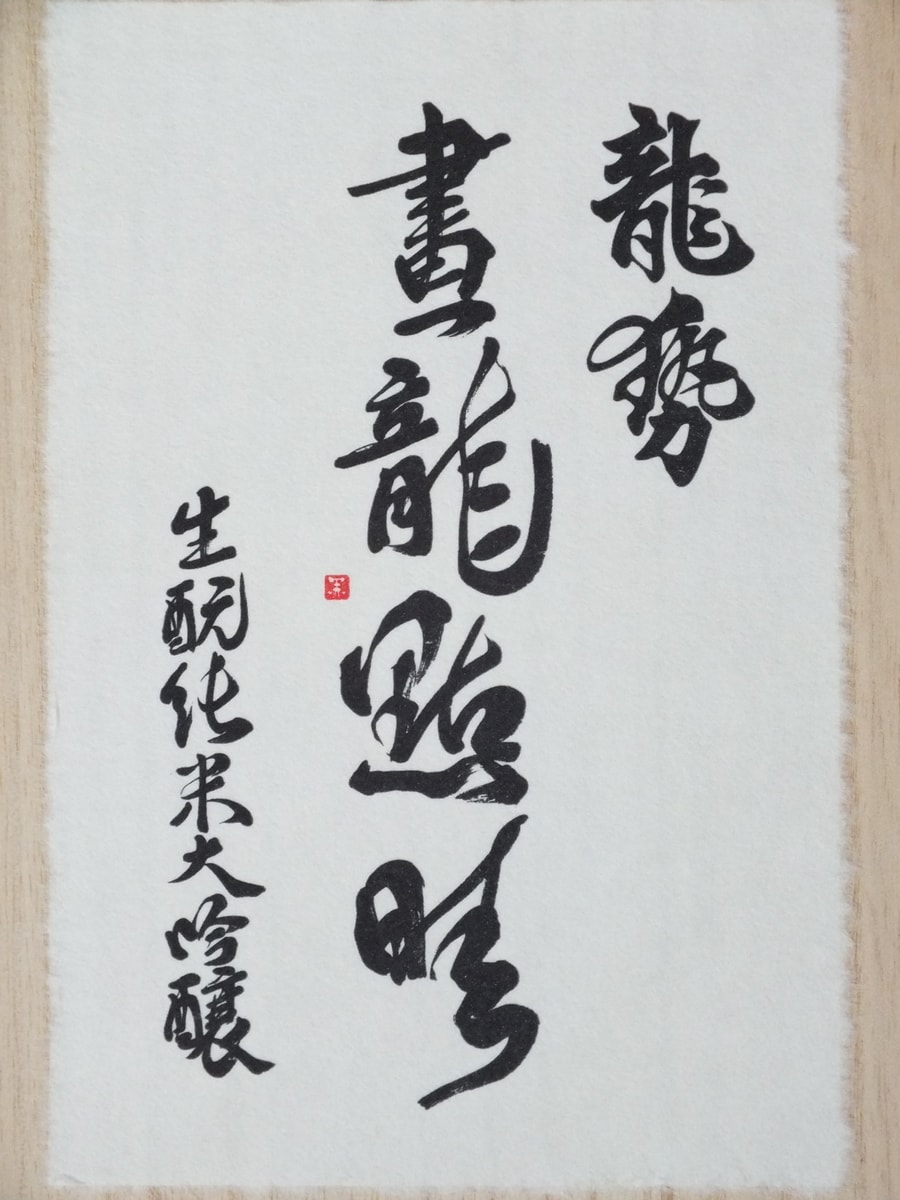 龍勢
畫龍點睛
生酛純米大吟醸